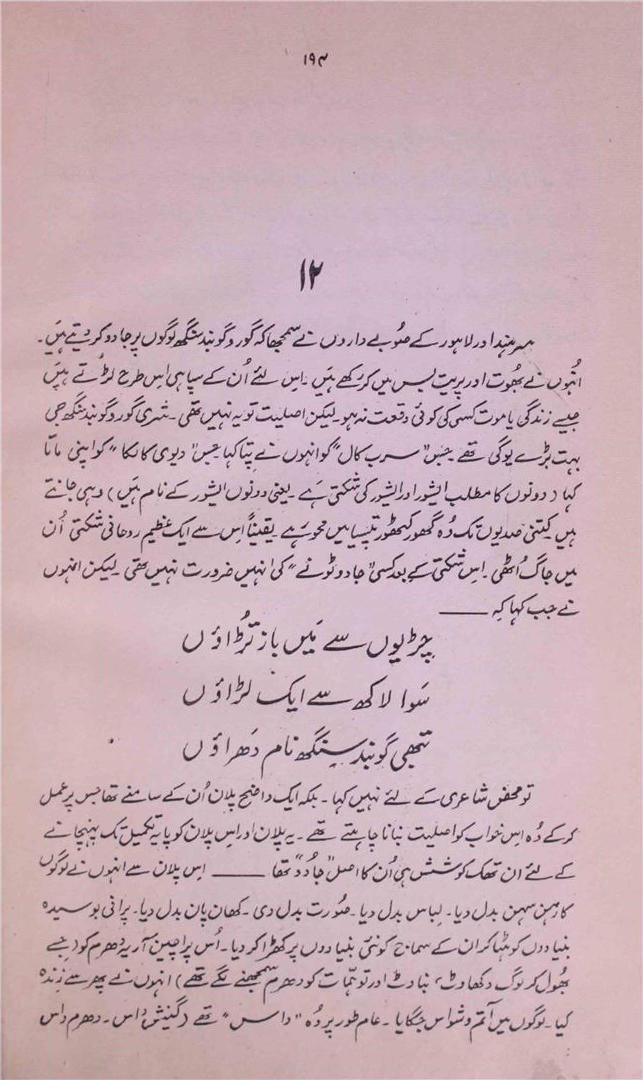 ۱۹۴
۱۲
سرہند اور لاہور کے صُوبے داروں نے سمجھا کہ گورو گوبند سنگھ لوگوں پر جادو کر دیتے ہیں۔
اُنہوں نے بھُوت اور پریت بس میں کر رکھے ہیں۔ اس لئے اُن کے سپاہی اس طرح لڑتے ہیں
جیسے زندگی یا موت کسی کی کوئی وقعت نہ ہو۔ لیکن اصلیت تو یہ نہیں تھی۔ شری گورو گوبند سنگھ جی
بہت بڑے یوگی تھے جس "سرب کال" کو انہوں نے پِتا کہا جس "دیوی کالکا" کو اپنی ماتا
کہا (دونوں کا مطلب ایشور اور ایشور کی شکتی ہے۔ یعنی دونوں ایشور کے نام ہیں) وہی جانتے
ہیں کتنی صدیوں تک وُہ گھور کٹھور تپسیا میں محو رہے۔ یقیناً اس سے ایک عظیم روحانی شکتی اُن
میں جاگ اُٹھی۔ اس شکتی کے بعد کسی "جادو ٹونے" کی انہیں ضرورت نہیں تھی۔ لیکن انہوں
نے جب کہا کہ ——
چڑیوں سے مَیں باز تُڑاؤں
سَوا لاکھ سے ایک لڑاؤں
تبھی گوبند سنگھ نام دَھراؤں
تو محض شاعری کے لئے نہیں کہا۔ بلکہ ایک واضح پلان اُن کے سامنے تھا جس پر عمل
کر کے وُہ اس خواب کو اصلیت بنانا چاہتے تھے۔ یہ پلان اور اس پلان کو پایہ تکمیل تک پہنچانے
کے لئے ان تھک کوشش ہی اُن کا اصل "جادُو" تھا —— اس پلان سے انہوں نے لوگوں
کا رہن سہن بدل دیا۔ لباس بدل دیا۔ صُورت بدل دی۔ کھان پان بدل دیا۔ پرانی بوسیدہ
بنیادوں کو ہٹا کر ان کے سماج کو نئی بنیادوں پر کھڑا کر دیا۔ اُس پراچین آریہ دھرم کو (جسے
بھُول کر لوگ دکھاوٹ، بناوٹ اور توہّمات کو دھرم سمجھنے لگے تھے) انہوں نے پھر سے زندہ
کیا۔ لوگوں میں آتم وشواس جگایا۔ عام طور پر وُہ "داس" تھے (گنیش داس۔ دھرم داس